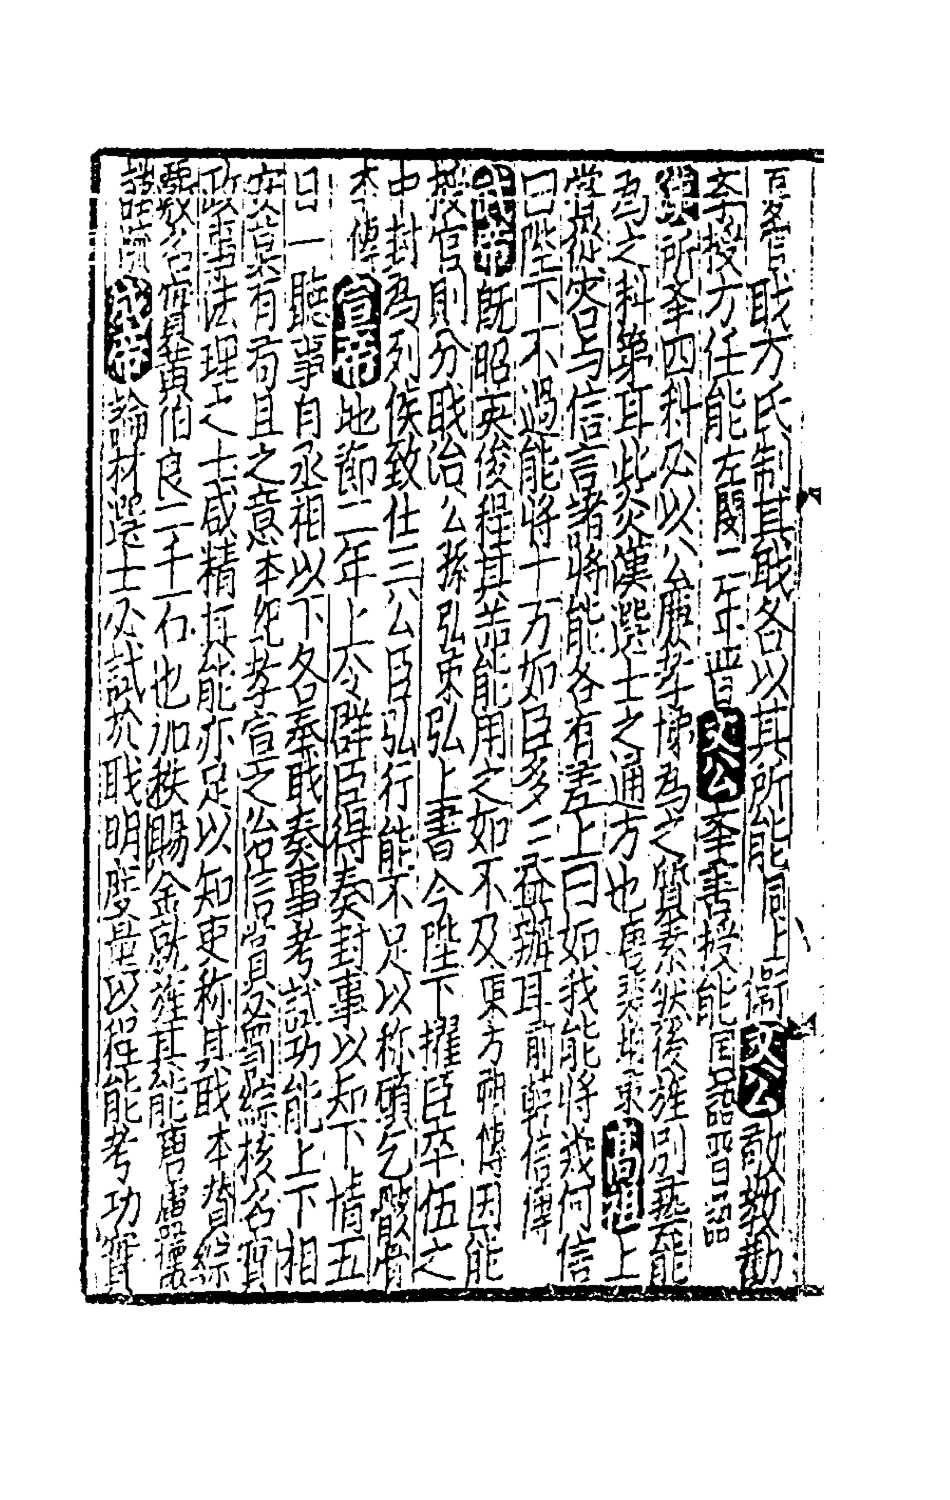 夏官職方氏制其職各以其所能同上衛文公敬教勸
李授方任能左閔二年晋文公李善授能国語晋語
漢所李四科必以公廉孝悌為之質素然後旌別藝能
為之科第耳此炎漢選士之通方也唐裴 髙祖上
常從容与信言諸將能各有差上曰如我能將幾何信
曰陛下不過能將十万如臣多々益辦耳前韓信傳
武帝既昭英俊程其噐能用之如不及東方朔傳因能
授官則分職治公孫弘策弘上書今陛下擢臣卒伍之
中封為列侯致仕三公臣弘行能不足以称碩乞骸骨
本傳宣帝地節二年上令群臣得奏封事以知下情五
日一聽事自丞相以下各奉職奏事考試功能上下相
安莫有苟且之意本紀孝宣之治信賞必罰綜核名實
政事法理之士咸精其能亦足以知吏称其職本賛綜
覈名實黄伯良二千石也加秩賜金就旌其能唐盧懷
慎 成帝論材選士必試於職明度量以程能考功實